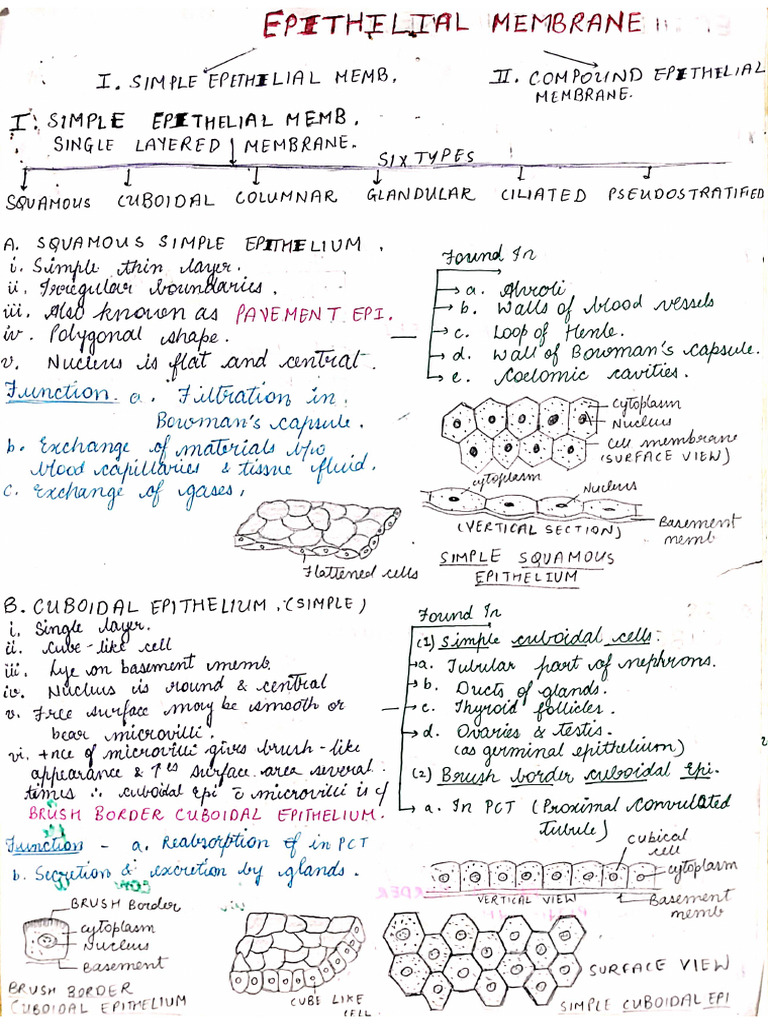 EPITHILIAL MEMBRANE
I. SIMPLE EPITHELIAL MEMB.
II. COMPOUND EPITHELIAL
MEMBRANE.
I. SIMPLE EPITHELIAL MEMB.
SINGLE LAYERED MEMBRANE.
SIX TYPES
SQUAMOUS CUBOIDAL COLUMNAR GLANDULAR CILIATED PSEUDOSTRATIFIED
A. SQUAMOUS SIMPLE EPITHELIUM.
i. Simple thin layer.
ii. Irregular boundaries.
iii. Also known as PAVEMENT EPI.
iv. Polygonal shape.
v. Nucleus is flat and central.
Found In
a. Alveoli
b. Walls of blood vessels
c. Loop of Henle.
d. Wall of Bowman's capsule.
e. Coelomic cavities.
Function. a. Filtration in
Bowman's capsule.
b. Exchange of materials b/w
blood capillaries & tissue fluid.
c. Exchange of gases,
Cytoplasm
Nucleus
Cell membrane
(SURFACE VIEW)
cytoplasm
Nucleus
(VERTICAL SECTION)
Basement
memb
SIMPLE SQUAMOUS
EPITHELIUM
Flattened cells
B. CUBOIDAL EPITHELIUM, (SIMPLE)
i. Single layer.
ii. Cube-like cell
iii. Lye on basement memb.
iv. Nucleus is round & central
v. Free surface may be smooth or
bear microvilli.
vi. +nce of microvilli gives brush-like
appearance & ↑es surface area several
times ∴ cuboidal epi c̄ microvilli is c/
BRUSH BORDER CUBOIDAL EPITHELIUM.
Found In
(1) Simple cuboidal cells:
a. Tubular part of nephrons.
b. Ducts of glands.
c. Thyroid follicles.
d. Ovaries & testis.
(as germinal epithelium)
(2) Brush border cuboidal Epi.
a. In PCT (Proximal Convulated
tubule)
Function - a. Reabsorption of in PCT
b. Secretion & excretion by glands.
cubical
cell
cytoplasm
VERTICAL VIEW
Basement
memb
BRUSH Border
cytoplasm
Nucleus
Basement
BRUSH BORDER
CUBOIDAL EPITHELIUM
CUBE LIKE
CELL
SURFACE VIEW
SIMPLE CUBOIDAL EPI